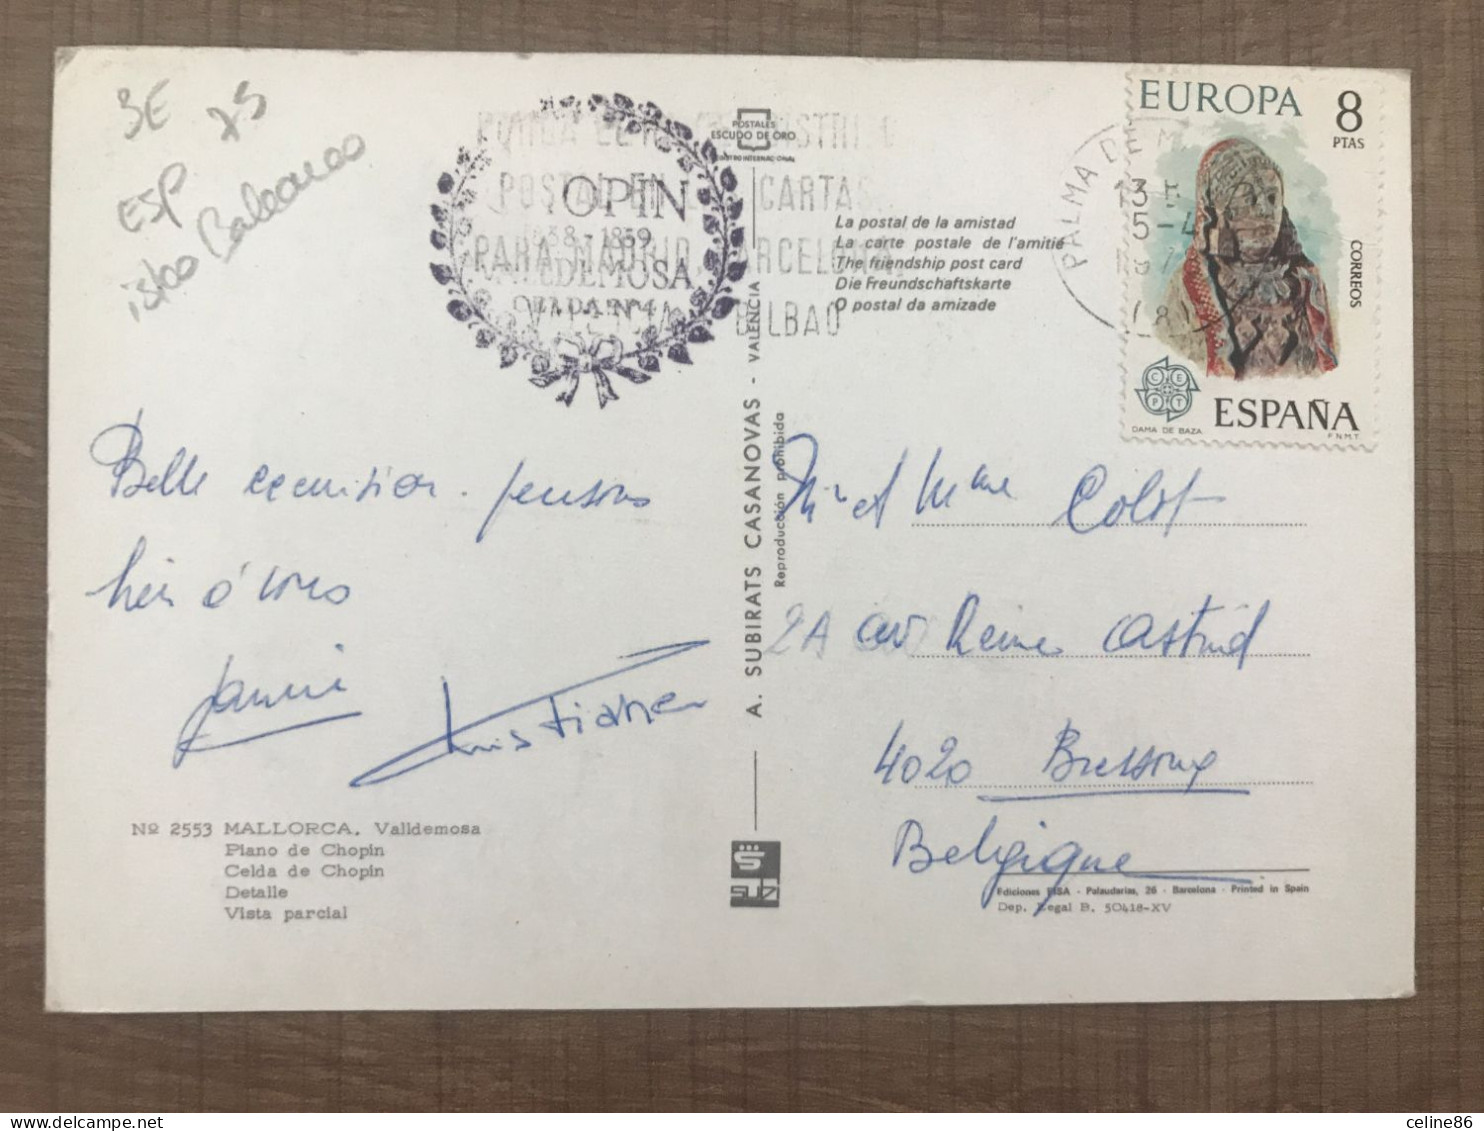 3E
75
ESP
islas Baleares
POSTALES
ESCUDO DE ORO
DISTRI
POSTAL EN CARTAS
PARA MADRID, BARCELONA,
BILBAO
OPIN
1838-1839
VALLDEMOSA
La postal de la amistad
La carte postale de l'amitié
The friendship post card
Die Freundschaftskarte
O postal da amizade
PALMA DE M
EUROPA 8
PTAS
CORREOS
CEPT
ESPAÑA
DAMA DE BAZA
F.N.M.T.
Belle excursion. pensons
bien à vous
Janine
Christiane
A. SUBIRATS CASANOVAS - VALENCIA
Reproducción prohibida
Mr et Mme Colot
2A av Reine Astrid
4020 Bressoux
Belgique
Nº 2553 MALLORCA. Valldemosa
Piano de Chopin
Celda de Chopin
Detalle
Vista parcial
SUBI
Ediciones FISA - Palaudarias, 26 - Barcelona - Printed in Spain
Dep. Legal B. 50418-XV
celine86